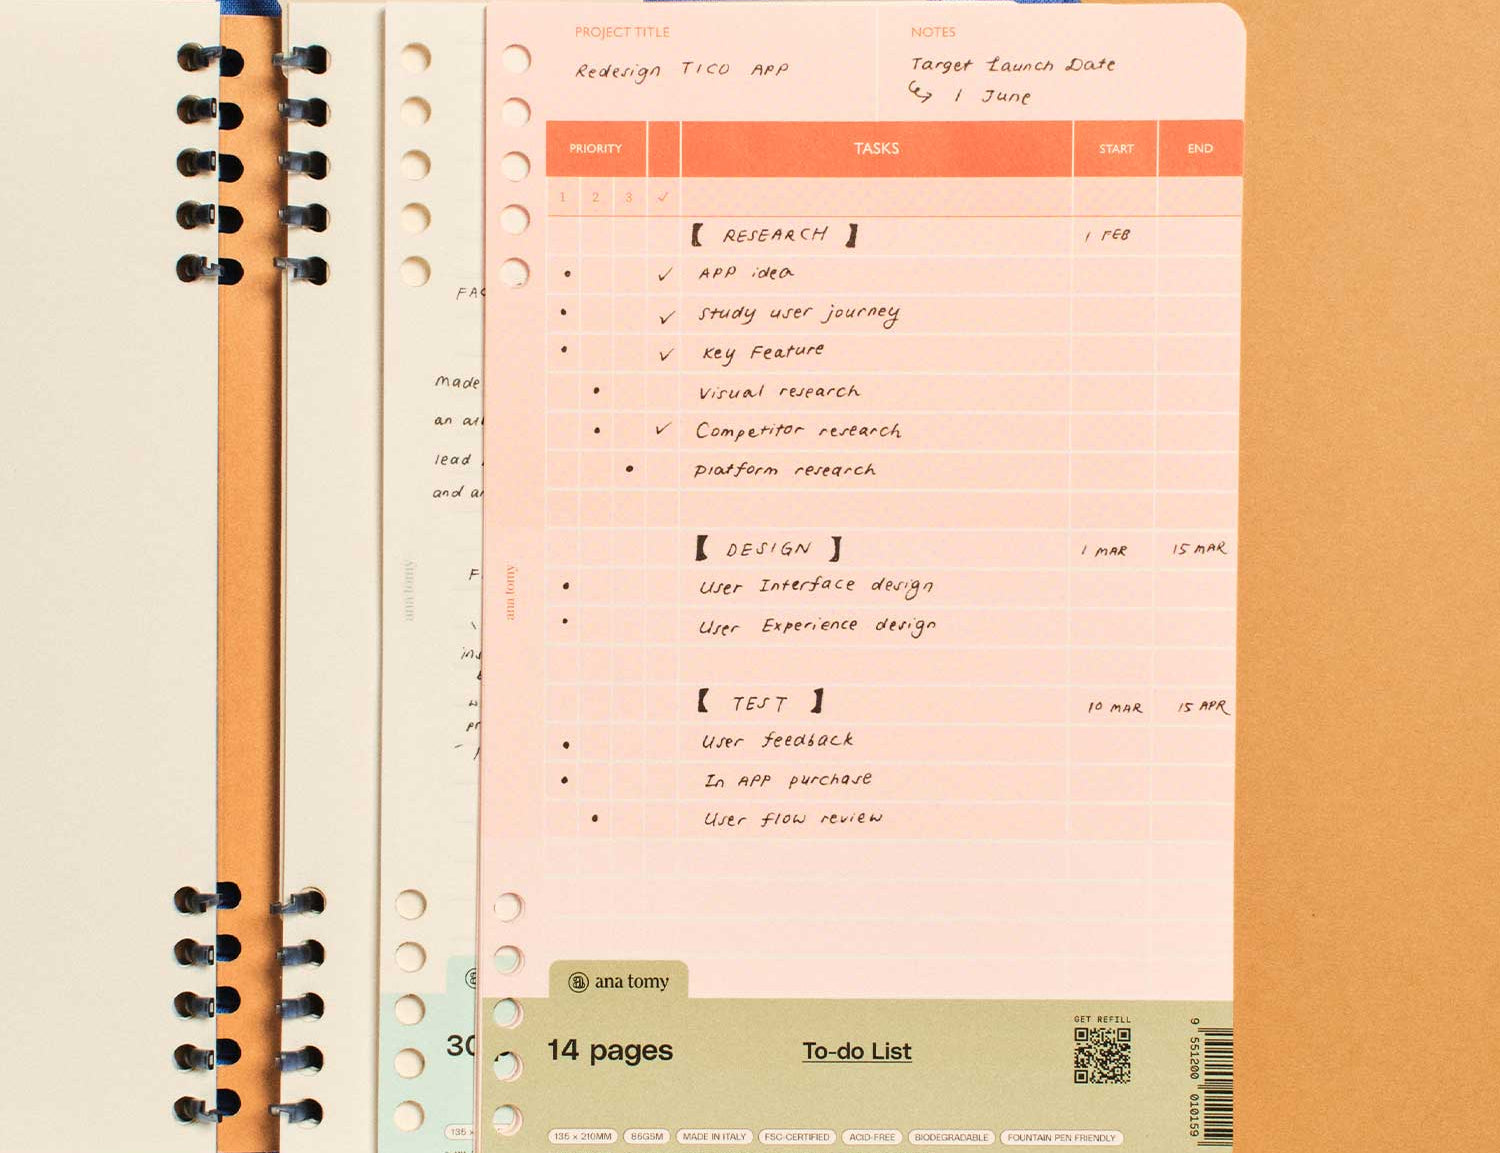 PROJECT TITLE
Redesign TICO APP
NOTES
Target Launch Date
↳ 1 June
PRIORITY TASKS START END
1 2 3 ✓
【 RESEARCH 】 1 FEB
• ✓ APP idea
• ✓ Study user journey
• ✓ Key Feature
• Visual research
• ✓ Competitor research
• Platform research
【 DESIGN 】 1 MAR 15 MAR
• User Interface design
• User Experience design
【 TEST 】 10 MAR 15 APR
• User feedback
• In APP purchase
• User flow review
ana tomy
ana tomy
made
an
lead
and
ana tomy
14 pages
To-do List
GET REFILL
9 551200 010159
135 x 210MM 85GSM MADE IN ITALY FSC-CERTIFIED ACID-FREE BIODEGRADABLE FOUNTAIN PEN FRIENDLY
135 x